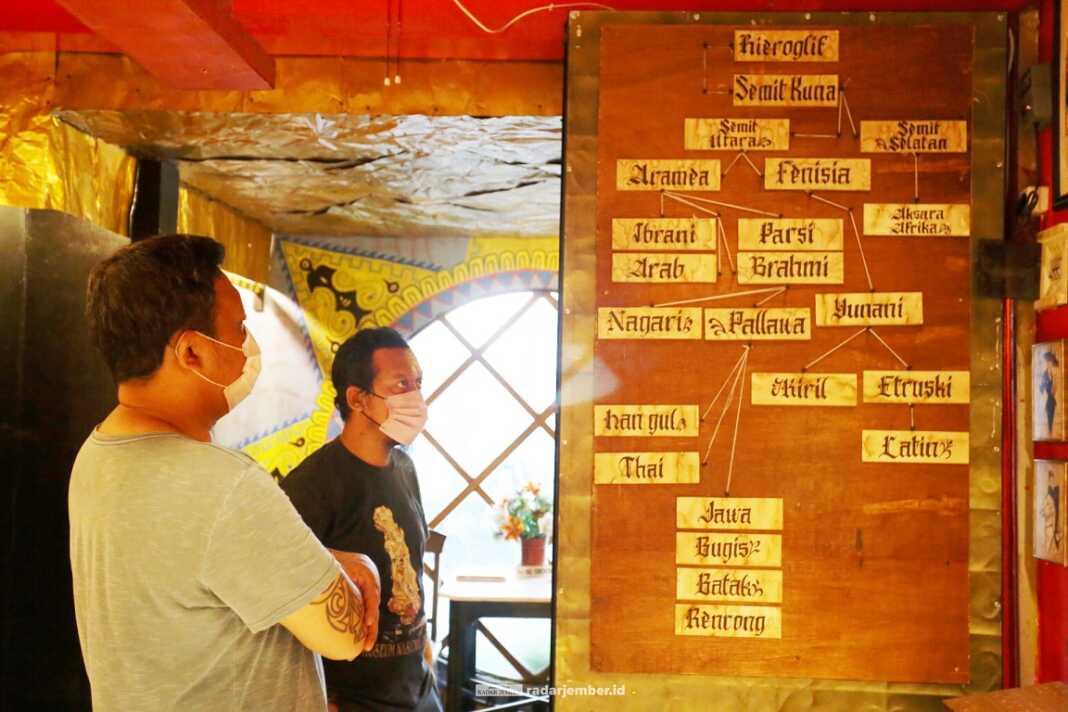 Hieroglif
Semit Kuna
Semit
Utara
Semit
Selatan
Aramea
Fenisia
Aksara
Afrika
Ibrani
Parsi
Arab
Brahmi
Yunani
Nagari
Pallawa
Kiril
Etruski
Han gul
Latin
Thai
Jawa
Bugis
Batak
Rencong
radarjember.id